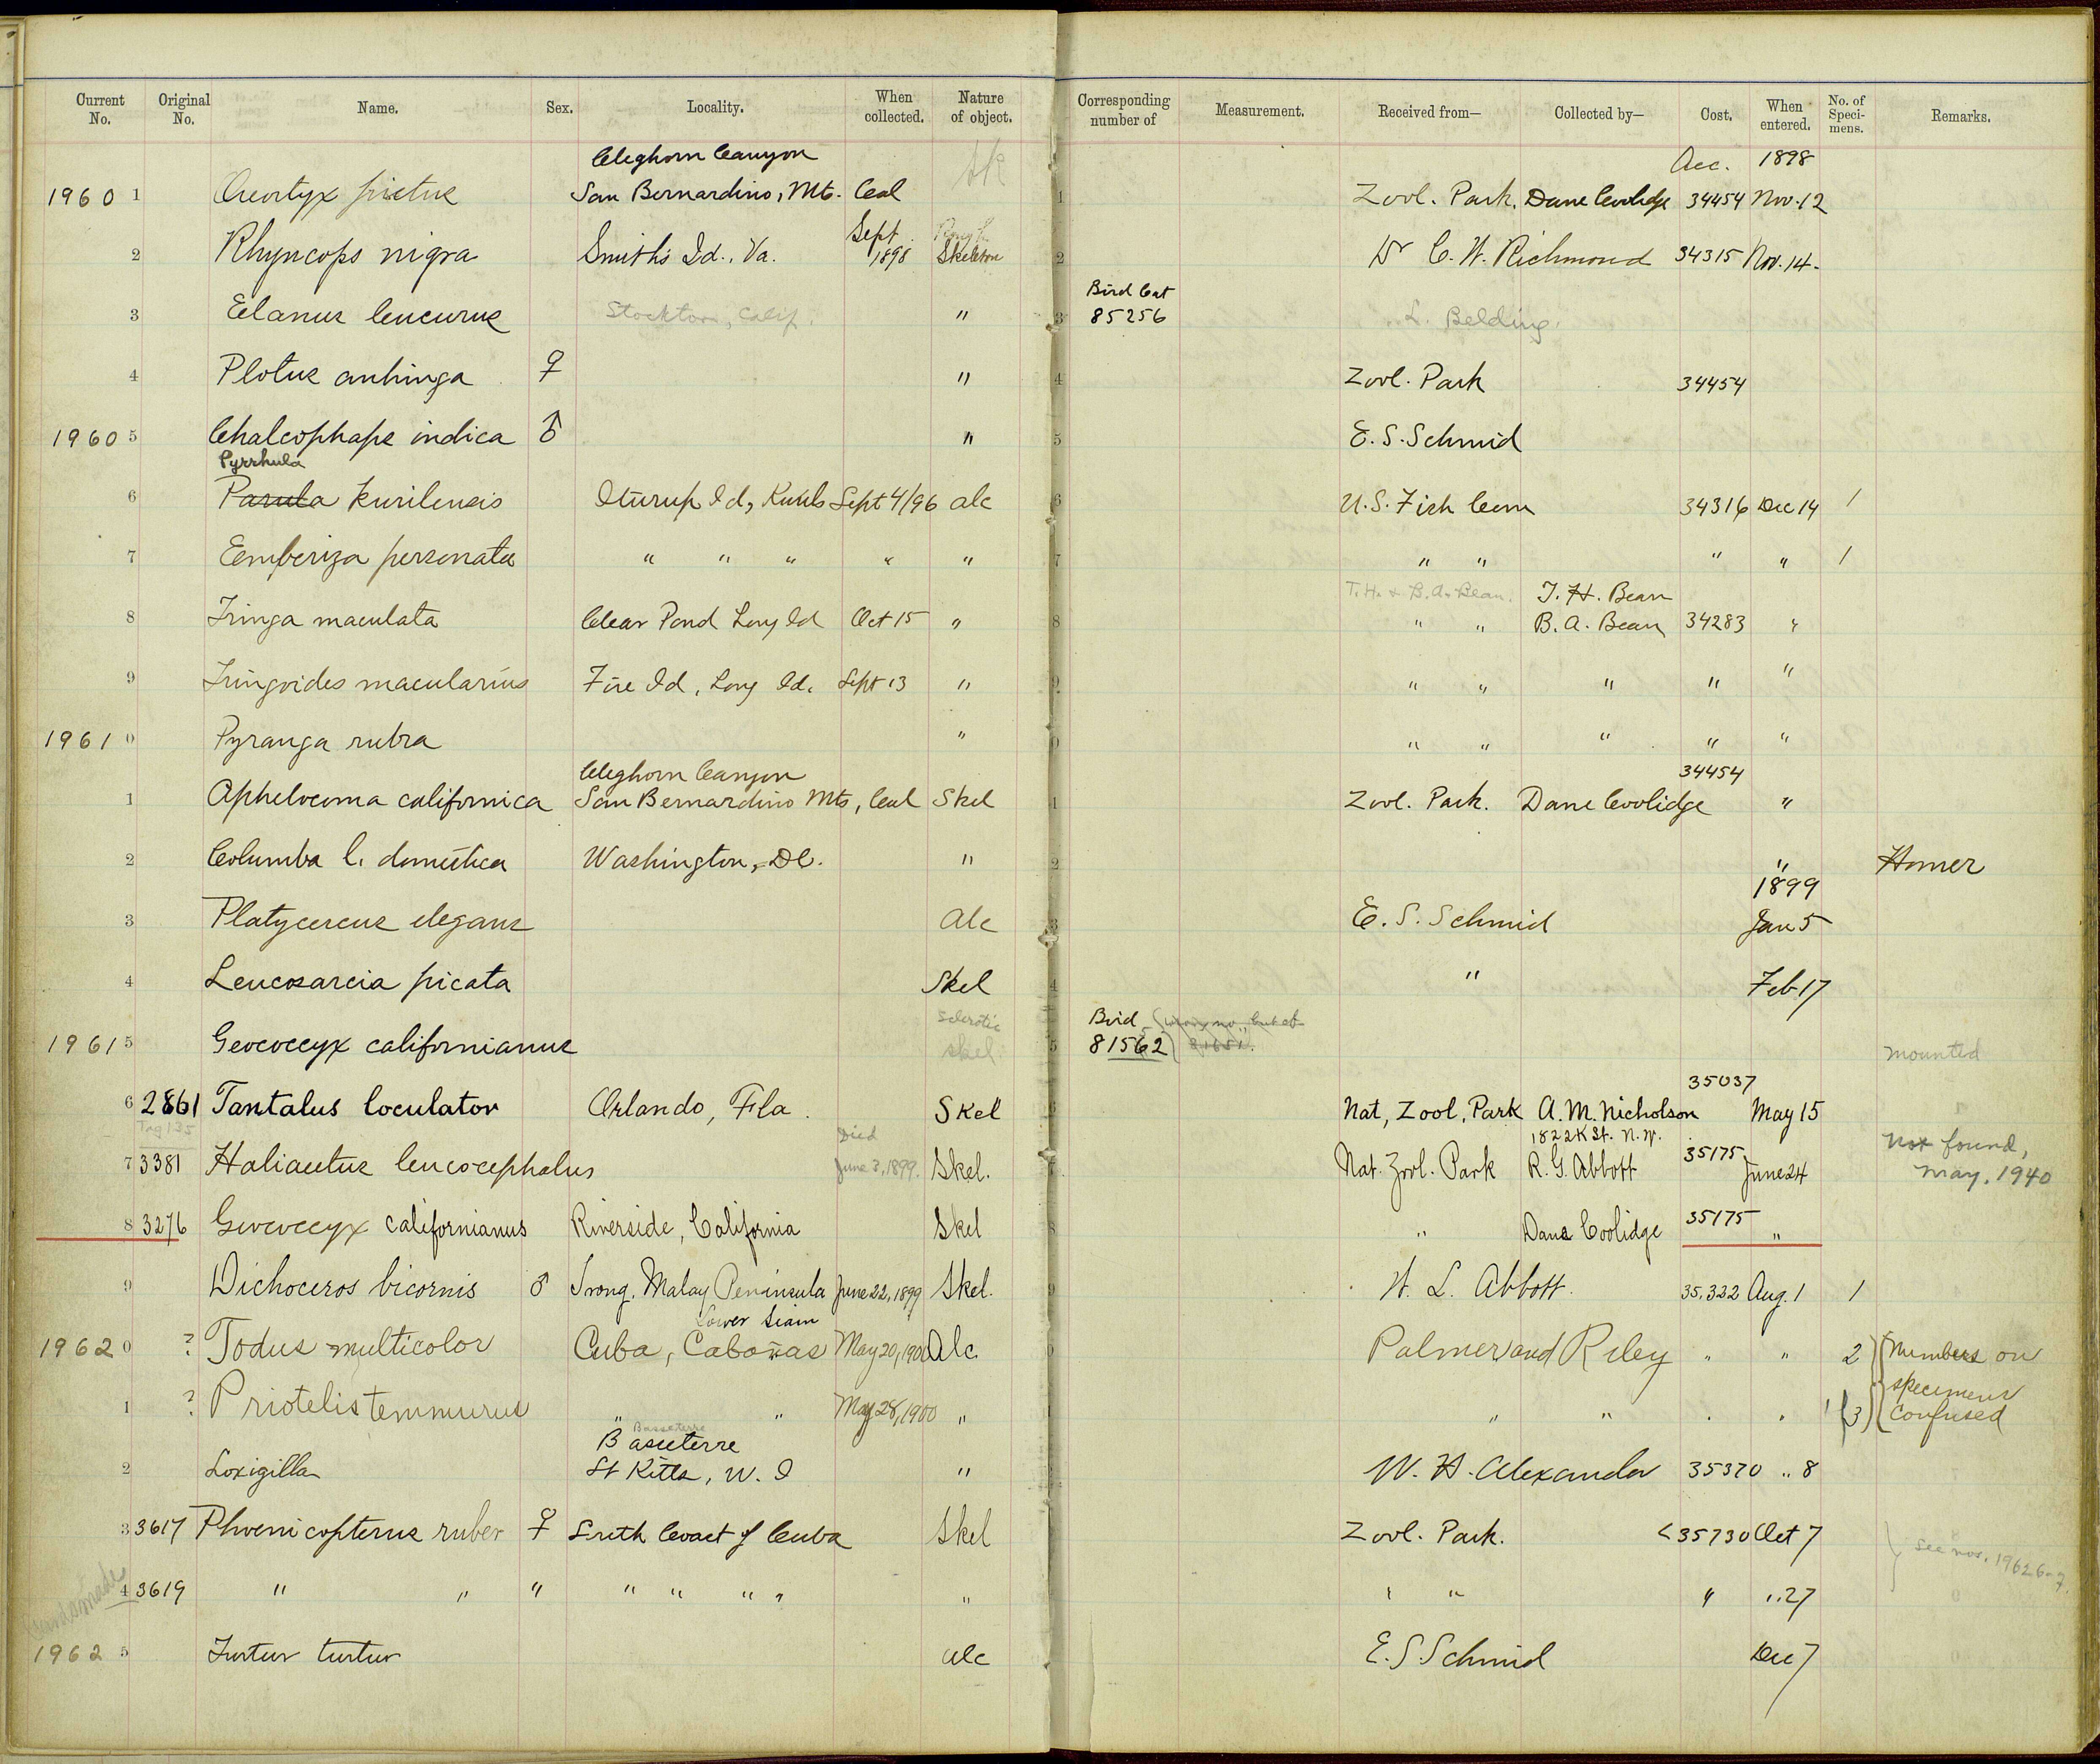 Current No. Original No. Name. Sex. Locality. When collected. Nature of object. Corresponding number of Measurement. Received from— Collected by— Cost. When entered. No. of Speci-mens. Remarks.
Cleghorn Canyon Acc. 1898
1960 1 Oreortyx pictus San Bernardino, Mts. Cal 1 Zool. Park. Dane Coolidge 34454 Nov. 12
2 Rhyncops nigra Smith's Id., Va. Sept. 1898 Skeleton 2 Dr C. W. Richmond 34315 Nov. 14.
Bird Cat
3 Elanus leucurus Stockton, Calif. " 3 85256 L. Belding.
4 Plotus anhinga ♀ " 4 Zool. Park 34454
1960 5 Chalcophaps indica ♂ " 5 E. S. Schmid
Pyrrhula
6 Parula kurilensis Iturup Id, Kurils Sept 4/96 alc 6 U.S. Fish Com 34316 Dec 14 1
7 Emberiza personata " " " " " 7 " " " " 1
T.H. & B.A. Bean. T. H. Bean
8 Tringa maculata Clear Pond Long Id Oct 15 " 8 " " B. A. Bean 34283 "
9 Tringoides macularius Fire Id, Long Id. Sept 13 " 9 " " " " "
1961 0 Pyranga rubra " 0 " " " " "
Cleghorn Canyon 34454
1 Aphelocoma californica San Bernardino Mts, Cal Skel 1 Zool. Park. Dane Coolidge "
2 Columba l. domestica Washington, DC. " 2 " Homer
1899
3 Platycercus elegans alc 3 E. S. Schmid Jan 5
4 Leucosarcia picata Skel 4 " Feb 17
sclerotic Bird
1961 5 Geococcyx californianus skel 5 81562 81651. mounted
35037
6 2861 Tantalus loculator Orlando, Fla. Skel Nat. Zool. Park A. M. Nicholson May 15
Tag 135 Died 1822 K St. N.W.
7 3381 Haliaetus leucocephalus June 3, 1899. Skel. Nat. Zool. Park R. G. Abbott 35175 June 24 Not found, May, 1940
8 3276 Geococcyx californianus Riverside, California Skel 8 " Dane Coolidge 35175 "
9 Dichoceros bicornis ♂ Trong, Malay Peninsula June 22, 1899 Skel. 9 W. L. Abbott. 35,322 Aug. 1 1
Lower Siam
1962 0 ? Todus multicolor Cuba, Cabañas May 20, 1900 Alc. Palmer and Riley " " 2 Numbers on
1 ? Priotelis temnurus " " May 28, 1900 " " " 1 (3) specimens confused
Basseterre
Basseterre
2 Loxigilla St Kitts, W. I " W. H. Alexander 35370 " 8
3 3617 Phoenicopterus ruber ♀ South Coast of Cuba Skel Zool. Park. 35730 Oct 7 See nos. 19626-7.
4 3619 " " " " " " " " " " " " 27
1962 5 Turtur turtur alc E. S. Schmid Dec 7